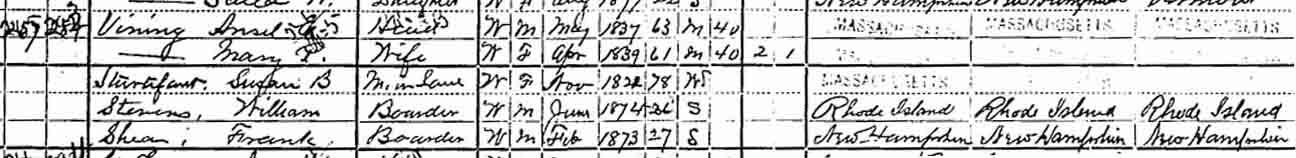 Daughter W F Aug 1877 22 S New Hampshire New Hampshire Vermont
257 Vining Ansel Head W M May 1837 63 M 40 MASSACHUSETTS MASSACHUSETTS MASSACHUSETTS
— Mary Wife W F Apr 1839 61 M 40 2 1
Sturtifant, Susan B M. in Law W F Nov 1822 78 Wd MASSACHUSETTS
Stevens, William Boarder W M June 1874 26 S Rhode Island Rhode Island Rhode Island
Shean, Frank Boarder W M Feb 1873 27 S New Hampshire New Hampshire New Hampshire